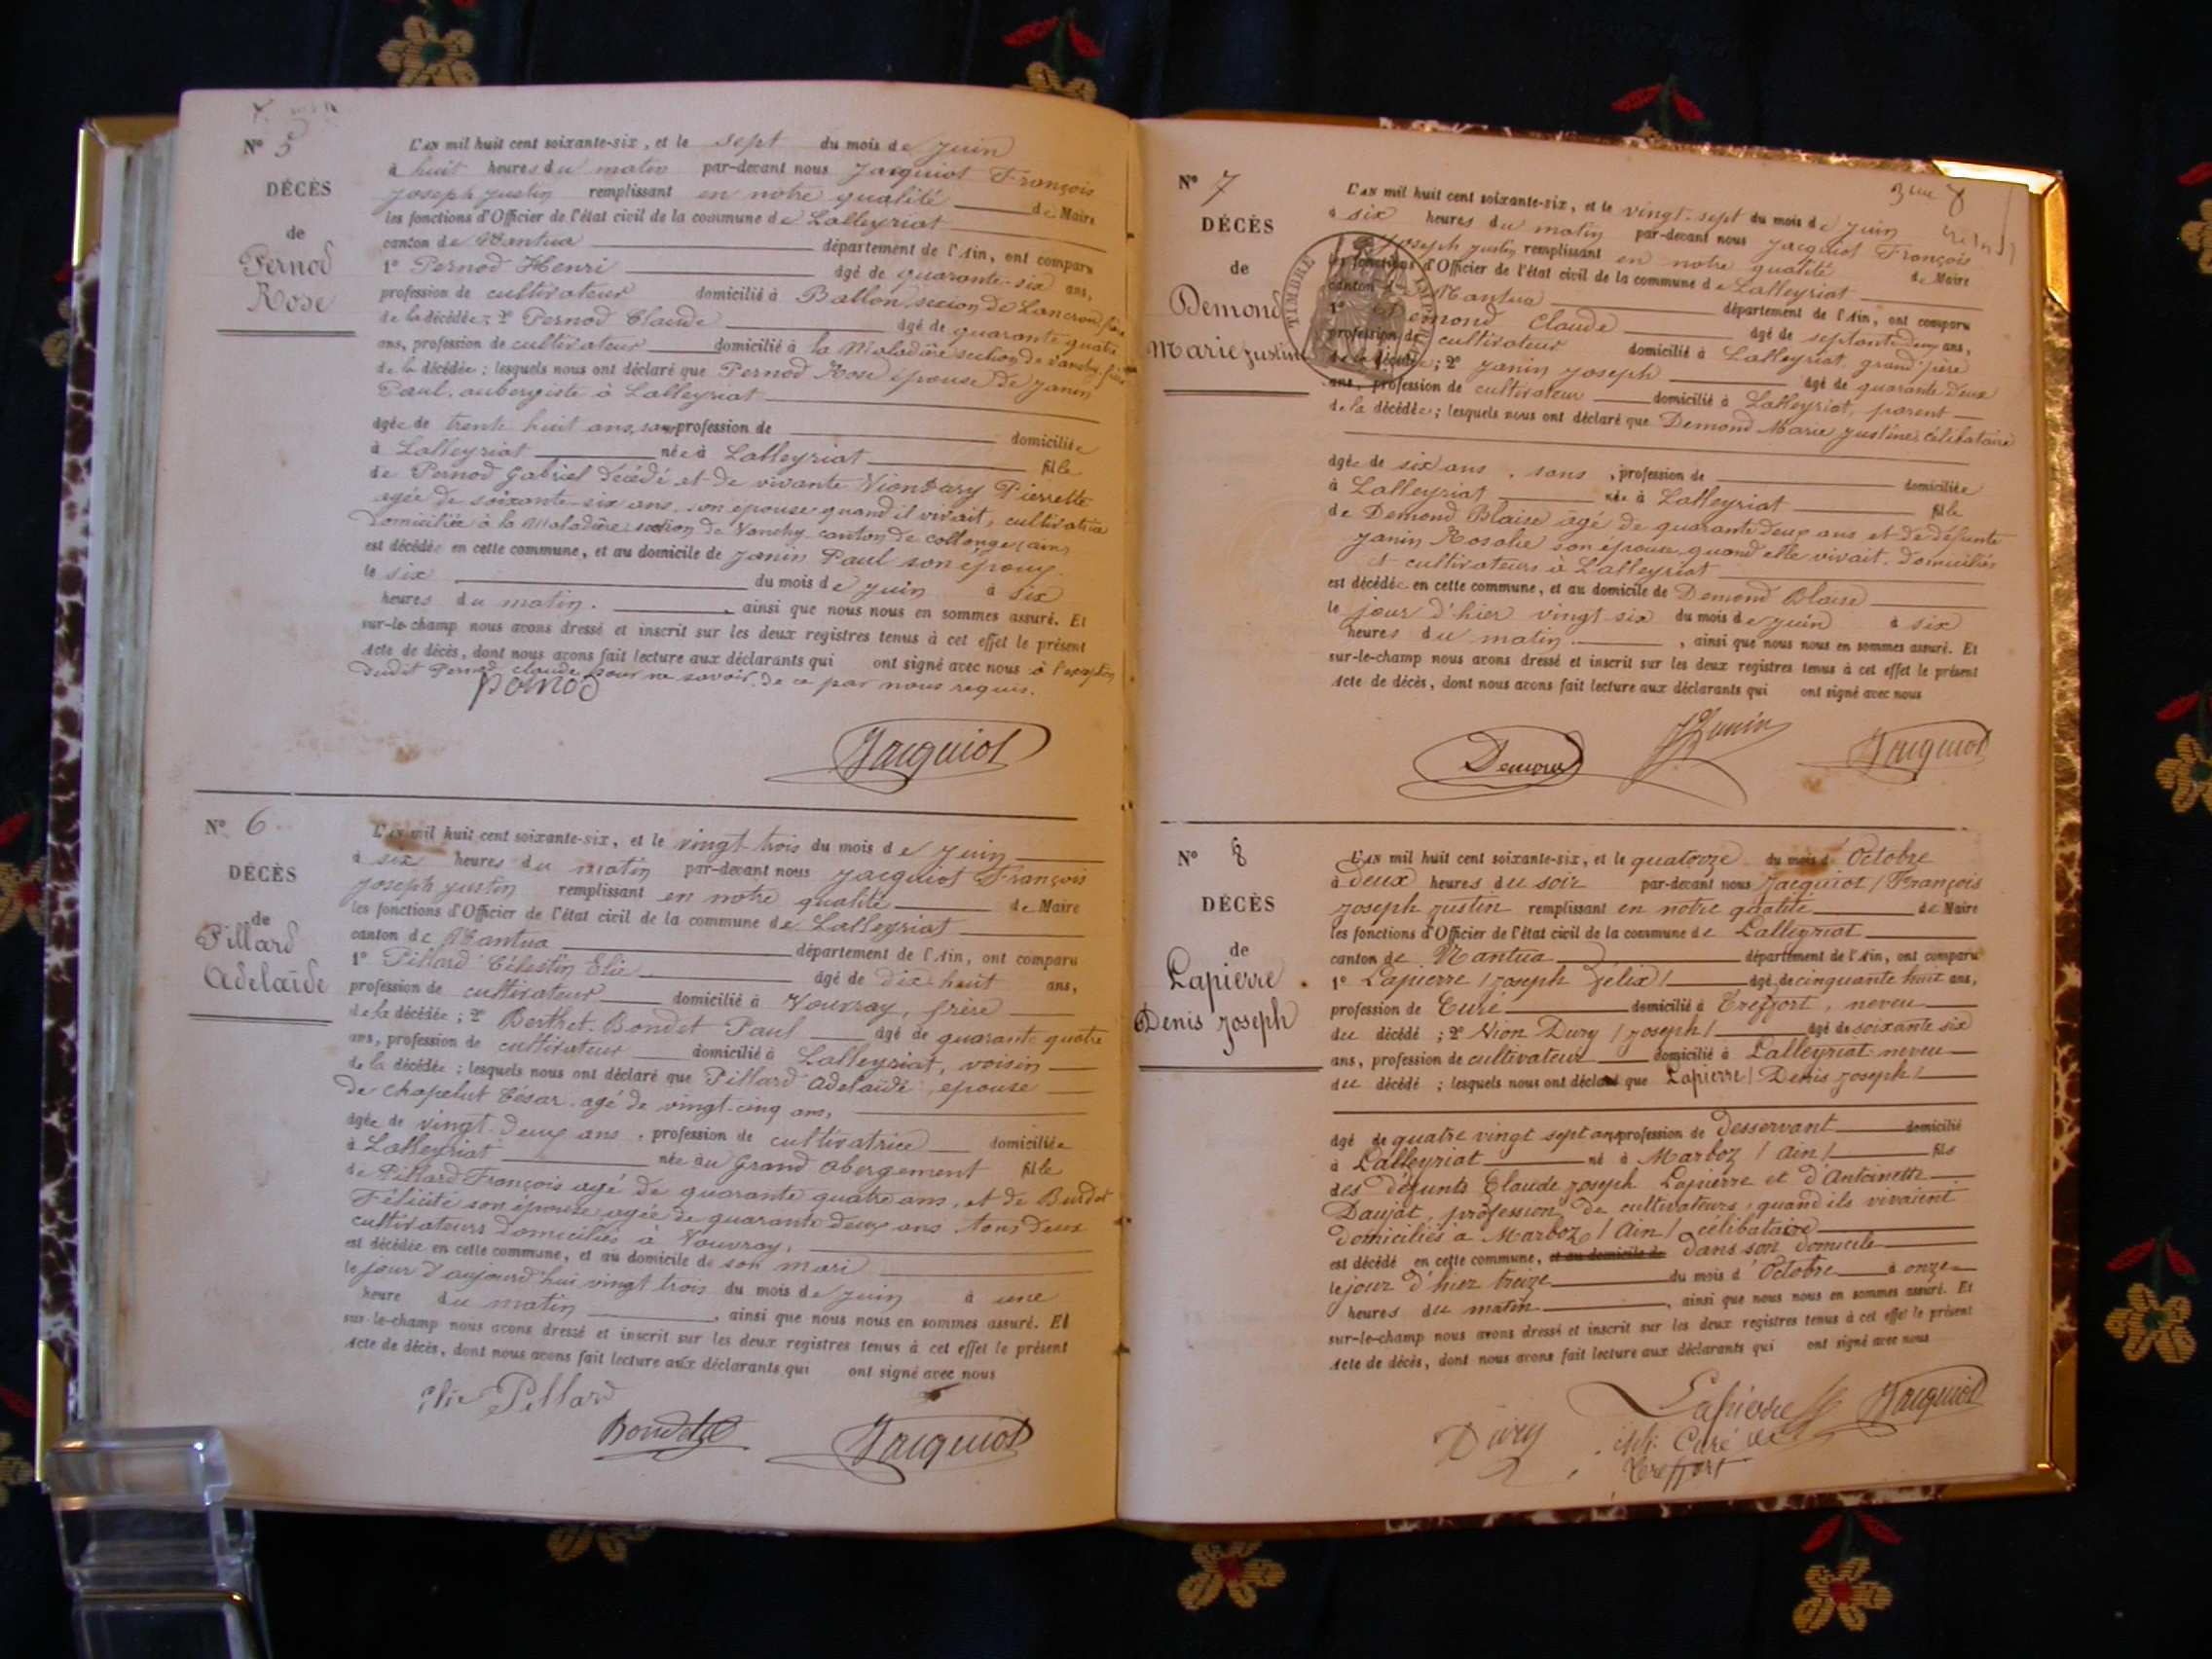 Nº 5
DÉCÈS
de
Pernod
Rose
L'AN mil huit cent soixante-six, et le sept du mois de juin
à huit heures du matin par-devant nous Jacquiot François
Joseph Justin remplissant en notre qualité de Maire
les fonctions d'Officier de l'état civil de la commune de Lalleyriat
canton de Nantua département de l'Ain, ont comparu
1º Pernod Henri âgé de quarante-six ans,
profession de cultivateur domicilié à Ballon, section de Lancrans, frère
de la décédée; 2º Pernod Claude âgé de quarante quatre
ans, profession de cultivateur domicilié à la Maladière section de Vanchy, frère
de la décédée; lesquels nous ont déclaré que Pernod Rose épouse de Janin
Paul, aubergiste à Lalleyriat
âgée de trente huit ans, sans profession de domiciliée
à Lalleyriat née à Lalleyriat fille
de Pernod Gabriel décédé et de vivante Viondury Pierrette
agée de soixante-six ans, son épouse quand il vivait, cultivatrice
domiciliée à la Maladière section de Vanchy canton de collonges (ain)
est décédée en cette commune, et au domicile de Janin Paul son époux
le six du mois de juin à six
heures du matin. , ainsi que nous nous en sommes assuré. Et
sur-le-champ nous avons dressé et inscrit sur les deux registres tenus à cet effet le présent
Acte de décès, dont nous avons fait lecture aux déclarants qui ont signé avec nous à l'exception
dudit Pernod Claude pour ne savoir, de ce par nous requis.
pernod
Jacquiot
Nº 6
DÉCÈS
de
Pillard
Adelaïde
L'AN mil huit cent soixante-six, et le vingt trois du mois de juin
à six heures du matin par-devant nous Jacquiot François
Joseph Justin remplissant en notre qualité de Maire
les fonctions d'Officier de l'état civil de la commune de Lalleyriat
canton de Nantua département de l'Ain, ont comparu
1º Pillard Célestin Elie âgé de dix-huit ans,
profession de cultivateur domicilié à Vouvray, frère
de la décédée; 2º Berthet-Bondet Paul âgé de quarante quatre
ans, profession de cultivateur domicilié à Lalleyriat, voisin
de la décédée; lesquels nous ont déclaré que Pillard Adelaïde, epouse
de Chapelut César agé de vingt-cinq ans,
âgée de vingt-deux ans, profession de cultivatrice domiciliée
à Lalleyriat née au Grand Abergement fille
de Pillard François agé de quarante quatre ans, et de Burdet
Félicité son épouse agée de quarante deux ans tous deux
cultivateurs domiciliés à Vouvray,
est décédée en cette commune, et au domicile de son mari
le jour d'aujourd'hui vingt trois du mois de juin à une
heure du matin , ainsi que nous nous en sommes assuré. Et
sur-le-champ nous avons dressé et inscrit sur les deux registres tenus à cet effet le présent
Acte de décès, dont nous avons fait lecture aux déclarants qui ont signé avec nous
Elie Pillard
Bondet
Jacquiot
Nº 7
DÉCÈS
de
Demond
Marie Justine
TIMBRE IMPERIAL
L'AN mil huit cent soixante-six, et le vingt-sept du mois de juin
à six heures du matin par-devant nous Jacquiot François
Joseph Justin remplissant en notre qualité de Maire
les fonctions d'Officier de l'état civil de la commune de Lalleyriat
canton de Nantua département de l'Ain, ont comparu
1º Demond Claude âgé de septante deux ans,
profession de cultivateur domicilié à Lalleyriat, grand père
de la décédée; 2º Janin Joseph âgé de quarante deux
ans, profession de cultivateur domicilié à Lalleyriat, parent
de la décédée; lesquels nous ont déclaré que Demond Marie Justine, célibataire
âgée de six ans, sans profession de domiciliée
à Lalleyriat née à Lalleyriat fille
de Demond Blaise âgé de quarante deux ans et de défunte
Janin Rosalie son épouse, quand elle vivait, domiciliés
et cultivateurs à Lalleyriat
est décédée en cette commune, et au domicile de Demond Blaise
le jour d'hier vingt-six du mois de juin à six
heures du matin , ainsi que nous nous en sommes assuré. Et
sur-le-champ nous avons dressé et inscrit sur les deux registres tenus à cet effet le présent
Acte de décès, dont nous avons fait lecture aux déclarants qui ont signé avec nous
Demond
J Janin
Jacquiot
Nº 8
DÉCÈS
de
Lapierre
Denis Joseph
L'AN mil huit cent soixante-six, et le quatorze du mois d'Octobre
à Deux heures du soir par-devant nous Jacquiot / François
Joseph Justin remplissant en notre qualité de Maire
les fonctions d'Officier de l'état civil de la commune de Lalleyriat
canton de Nantua département de l'Ain, ont comparu
1º Lapierre / Joseph Félix / âgé de cinquante huit ans,
profession de Curé domicilié à Treffort, neveu
du décédé; 2º Vion Dury / Joseph / âgé de soixante six
ans, profession de cultivateur domicilié à Lalleyriat neveu
du décédé; lesquels nous ont déclaré que Lapierre / Denis Joseph /
âgé de quatre vingt sept ans profession de Desservant domicilié
à Lalleyriat né à Marboz / Ain / fils
des défunts Claude Joseph Lapierre et d'Antoinette
Daujat, profession de cultivateurs, quand ils vivaient
domiciliés à Marboz / Ain / célibataire
est décédé en cette commune, et au domicile de dans son domicile
le jour d'hier treize du mois d'Octobre à onze
heures du matin , ainsi que nous nous en sommes assuré. Et
sur-le-champ nous avons dressé et inscrit sur les deux registres tenus à cet effet le présent
Acte de décès, dont nous avons fait lecture aux déclarants qui ont signé avec nous
Dury
Lapierre
Curé de
Treffort
Jacquiot